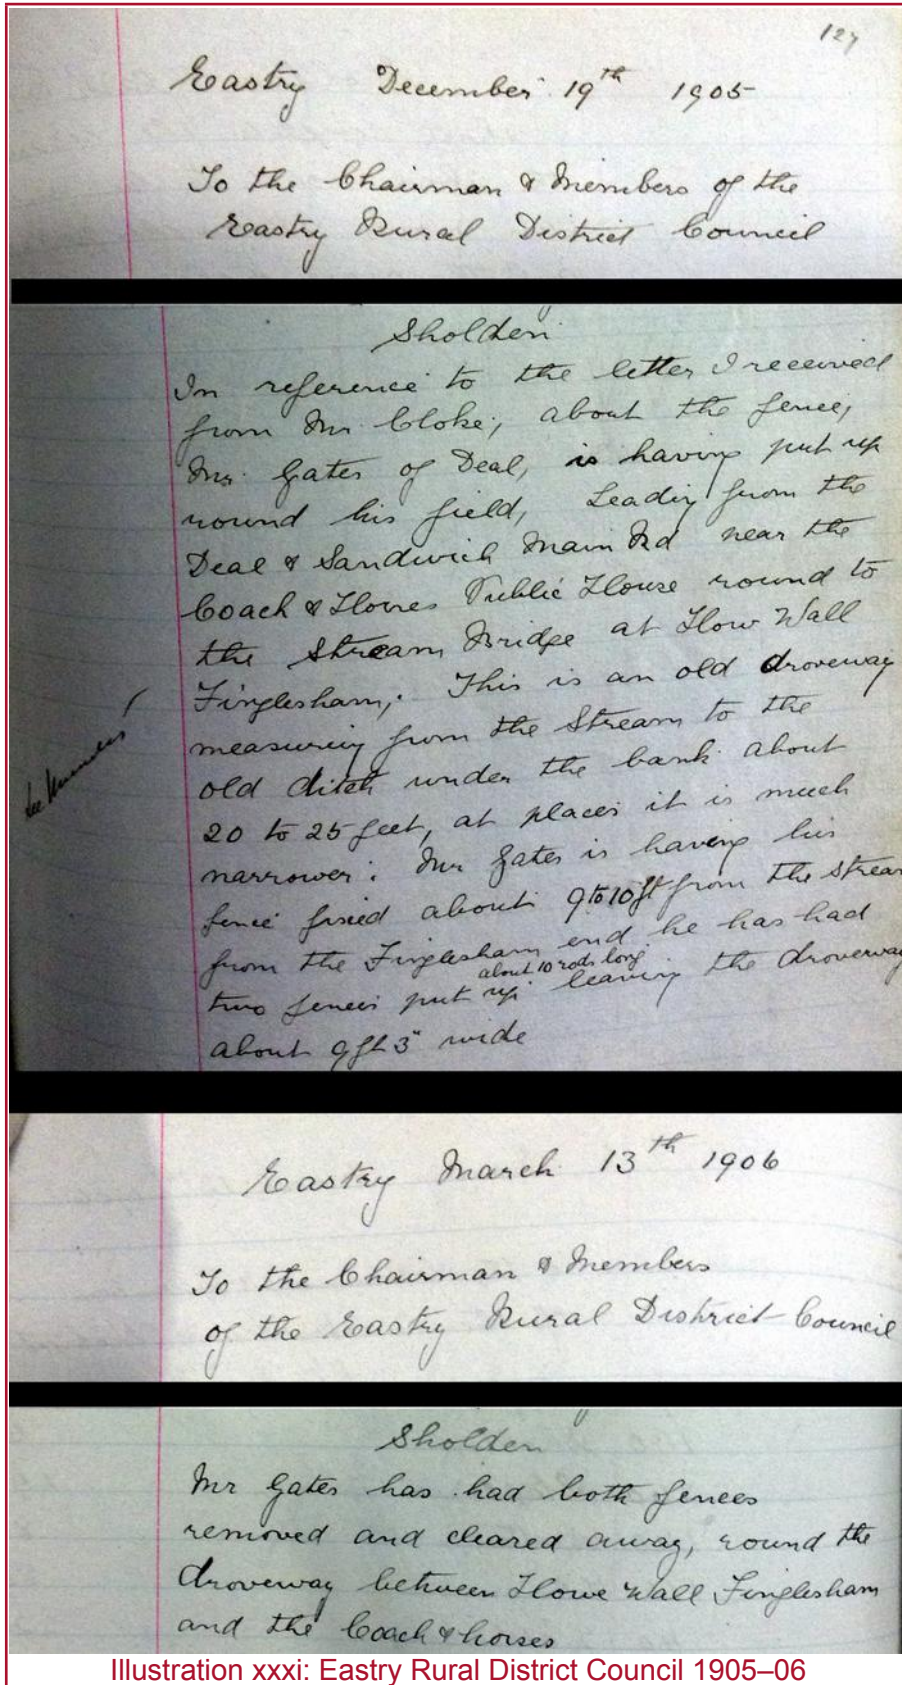 127
Eastry December 19th 1905
To the Chairman & Members of the
Eastry Rural District Council
Sholden
In reference to the letter I received
from Mr. Cloke, about the fence,
Mr. Gates of Deal, is having put up
round his field, Leading from the
Deal & Sandwich Main Rd near the
Coach & Horses Public House round to
the Stream Bridge at How Wall
Finglesham, This is an old droveway
measuring from the Stream to the
old ditch under the bank about
20 to 25 feet, at places it is much
narrower. Mr Gates is having his
fence fixed about 9 to 10 ft from the Stream
from the Finglesham end he has had
about 10 rods long
two fences put up leaving the droveway
about 9ft 3" wide
See Minutes
Eastry March 13th 1906
To the Chairman & Members
of the Eastry Rural District Council
Sholden
Mr Gates has had both fences
removed and cleared away, round the
droveway between Howe Wall Finglesham
and the Coach & horses
Illustration xxxi: Eastry Rural District Council 1905–06